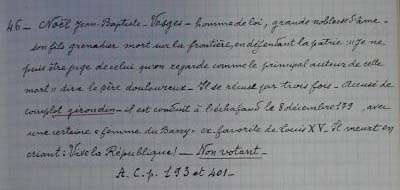 46 - Noël Jean-Baptiste - Vosges - homme de loi, grande noblesse d'âme
son fils grenadier mort sur la frontière, en défendant la patrie : "je ne
puis être juge de celui qu'on regarde comme le principal auteur de cette
mort" dira le père douloureux - Il se récuse par trois fois - Accusé de
complot girondin - il est conduit à l'échafaud le 8 décembre 179 , avec
une certaine "femme du Barry" ex favorite de Louis XV. Il meurt en
criant : Vive la République ! - Non votant -
A. C. p. 193 et 401 -